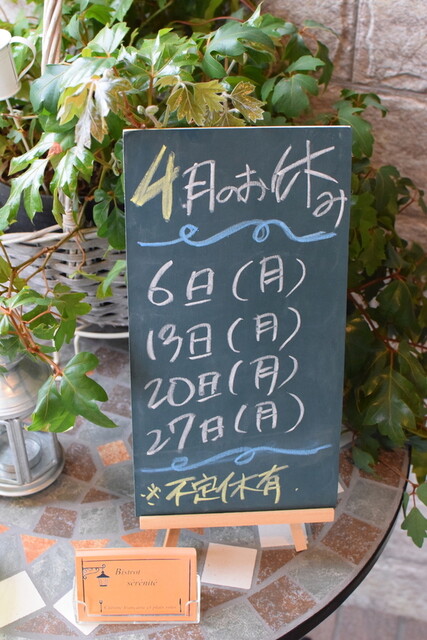 4月のお休み
6日(月)
13日(月)
20日(月)
27日(月)
※不定休有
Bistrot
sérénité